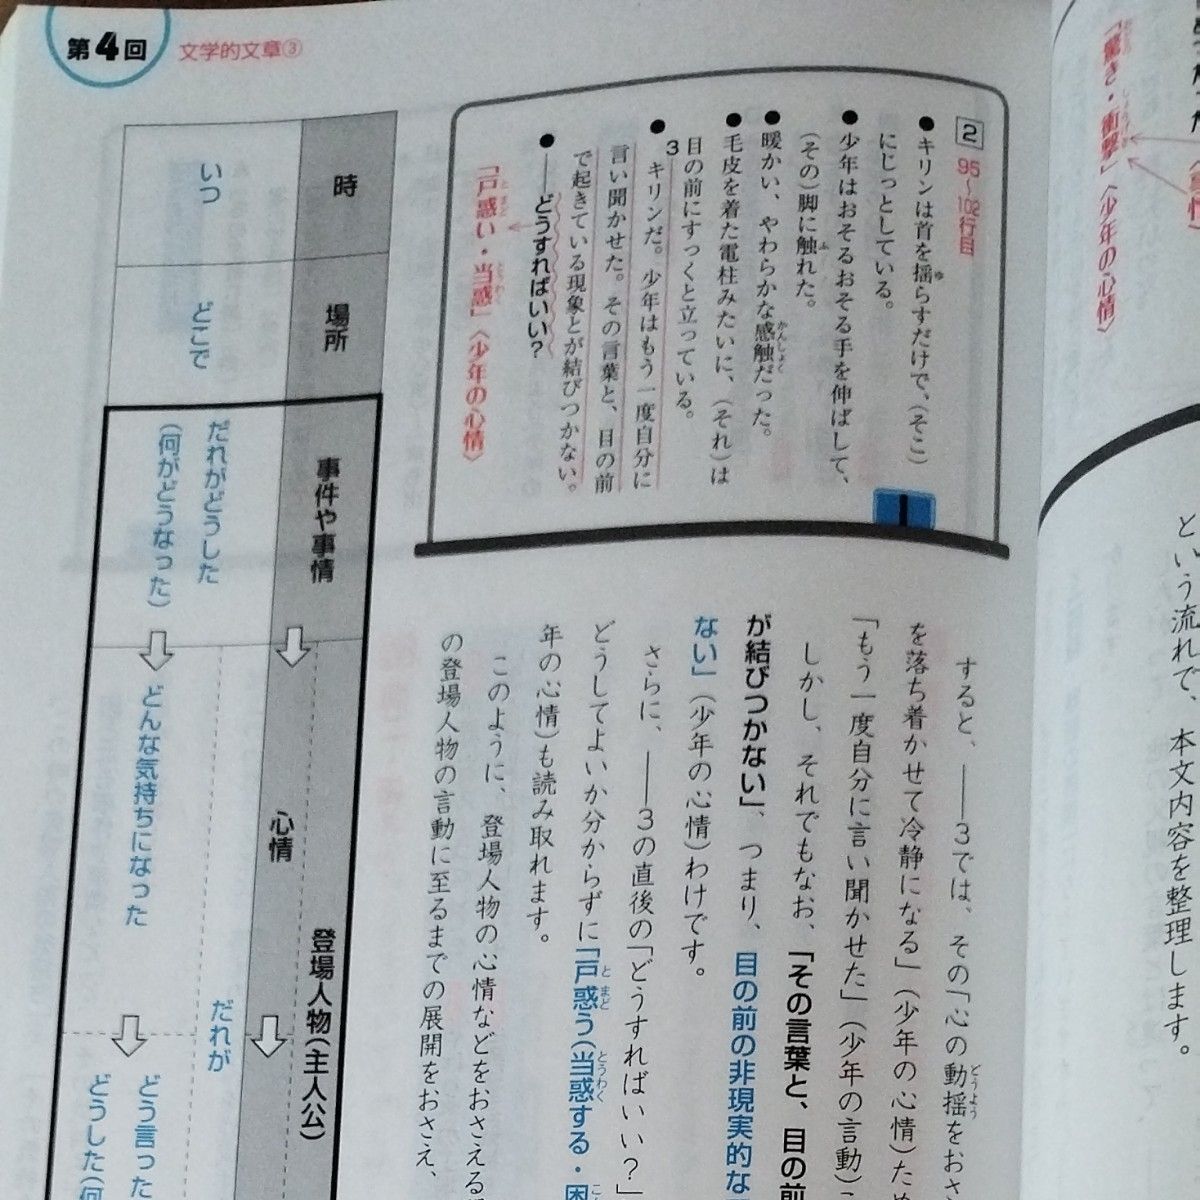 第4回
文学的文章③
「驚き・衝撃」〈少年の心情〉
という流れで、本文内容を整理します。
2 95～102行目
●キリンは首を揺らすだけで、(そこ)
にじっとしている。
●少年はおそるおそる手を伸ばして、
(その)脚に触れた。
●暖かい、やわらかな感触だった。
●毛皮を着た電柱みたいに、(それ)は
目の前にすっくと立っている。
3
●キリンだ。少年はもう一度自分に
言い聞かせた。その言葉と、目の前
で起きている現象とが結びつかない。
●――どうすればいい?
「戸惑い・当惑」〈少年の心情〉
1
すると、――3では、その「心の動揺をおさ
を落ち着かせて冷静になる」(少年の心情)ため
「もう一度自分に言い聞かせた」(少年の言動)
しかし、それでもなお、「その言葉と、目の前
が結びつかない」、つまり、目の前の非現実的な
ない」(少年の心情)わけです。
さらに、――3の直後の「どうすればいい?」
どうしてよいか分からずに「戸惑う(当惑する・困
年の心情)も読み取れます。
このように、登場人物の心情などをおさえる
の登場人物の言動に至るまでの展開をおさえ、
時
場所
事件や事情
心情
登場人物(主人公)
いつ
どこで
だれがどうした
(何がどうなった)
どんな気持ちになった
だれが
どう言った
どうした(何